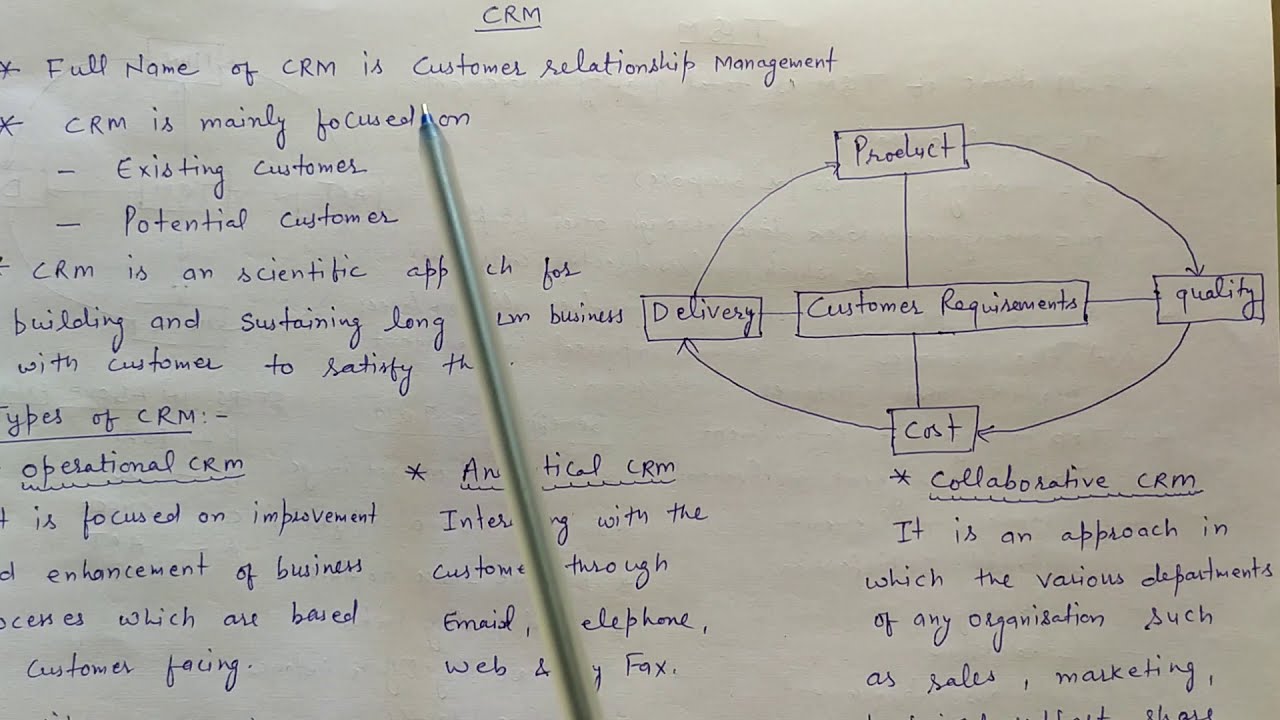 CRM
* Full Name of CRM is Customer relationship Management
* CRM is mainly focused on
- Existing customer
- Potential customer
CRM is an scientific app ch for
building and sustaining long business
with customer to satisfy
Product
Delivery
Customer Requirements
quality
Cost
Types of CRM:-
operational CRM
is focused on improvement
enhancement of business
which are based
customer facing.
* CRM
with the
through
Email,
Web & Fax.
* Collaborative CRM
It is an approach in
which the various departments
of any organisation such
as sales, marketing,
share